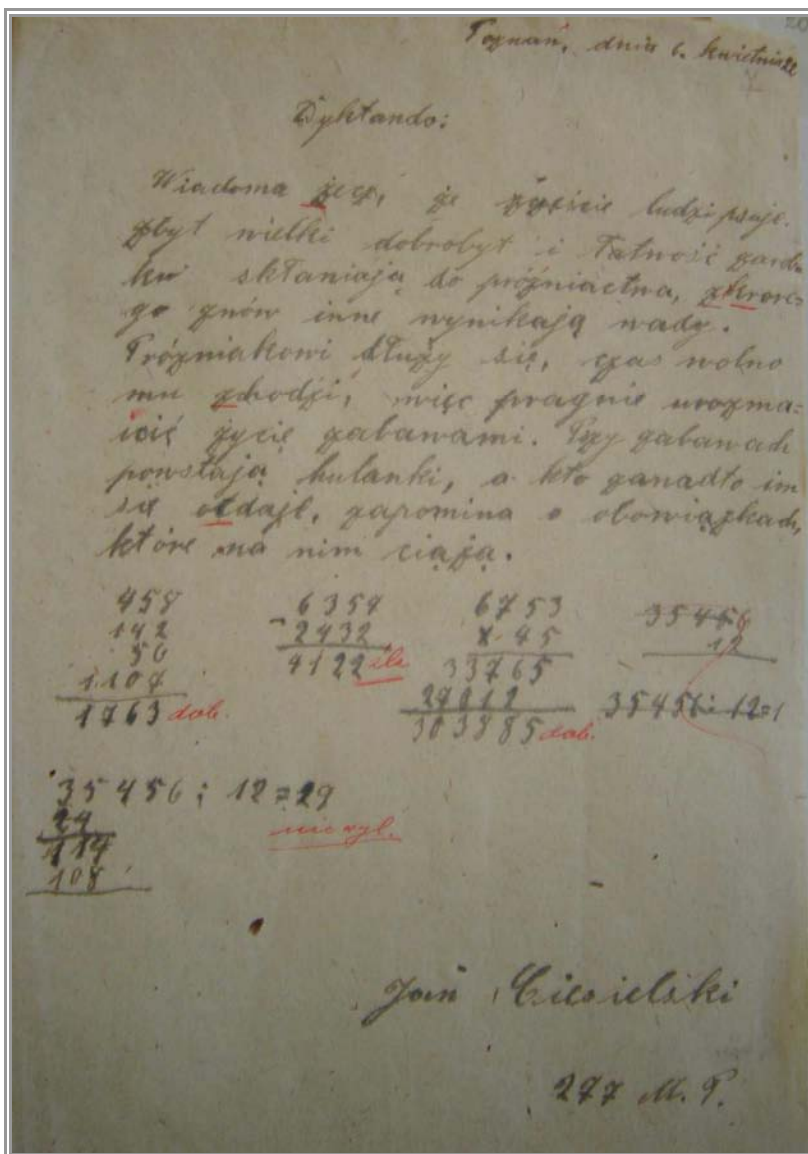 20
Poznań, dnia 6. kwietnia 22
Dyktando:
Wiadoma żecz, że ludzi psuje.
zbyt wielki dobrobyt i łatwość zarob
ku skłaniają do próżniactwa,
go znów inne wynikają wady.
Próżniakowi dłuży się, czas wolno
mu zhodzi, więc pragnie urozma=
icić życie zabawami. Przy zabawach
powstają hulanki, a kto zanadto im
się otdaje, zapomina o obowiązkach,
które na nim ciążą.
458
142
56
1107
1763 dob.
6354
- 2432
4122 źle
6753
x 45
33765
27012
303885 dob.
35456
12
35456 : 12=1
35456 : 12 = 29
24
114
108
nie wyk.
Jan Ciesielski
277 M. P.